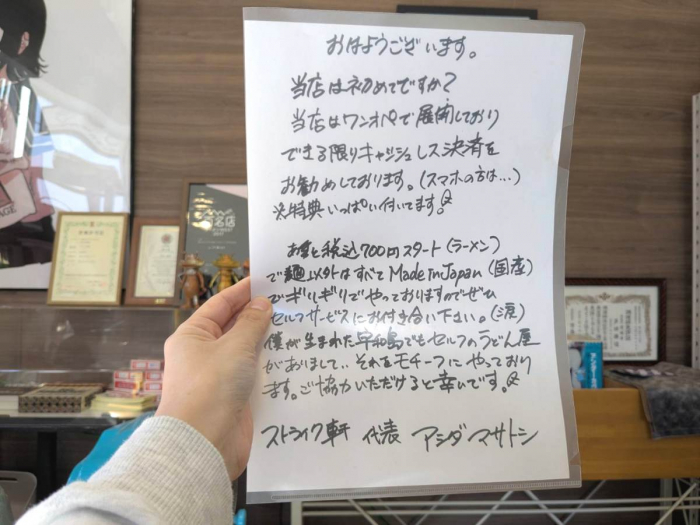 おはようございます。
当店は初めてですか?
当店はワンオペで展開しており
できる限りキャッシュレス決済を
お勧めしております。(スマホの方は…)
※特典いっぱい付いてます。
税込700円スタート(ラーメン)
で麺以外はすべてMade in Japan(国産)
でギリギリでやっておりますのでぜひ
セルフサービスにお付き合い下さい。(涙)
僕が生まれた宇和島でもセルフのうどん屋
がありまして‥それをモチーフにやっており
ます。ご協力いただけると幸いです。
ストライク軒 代表 アシダ マサトシ
名店
AGE